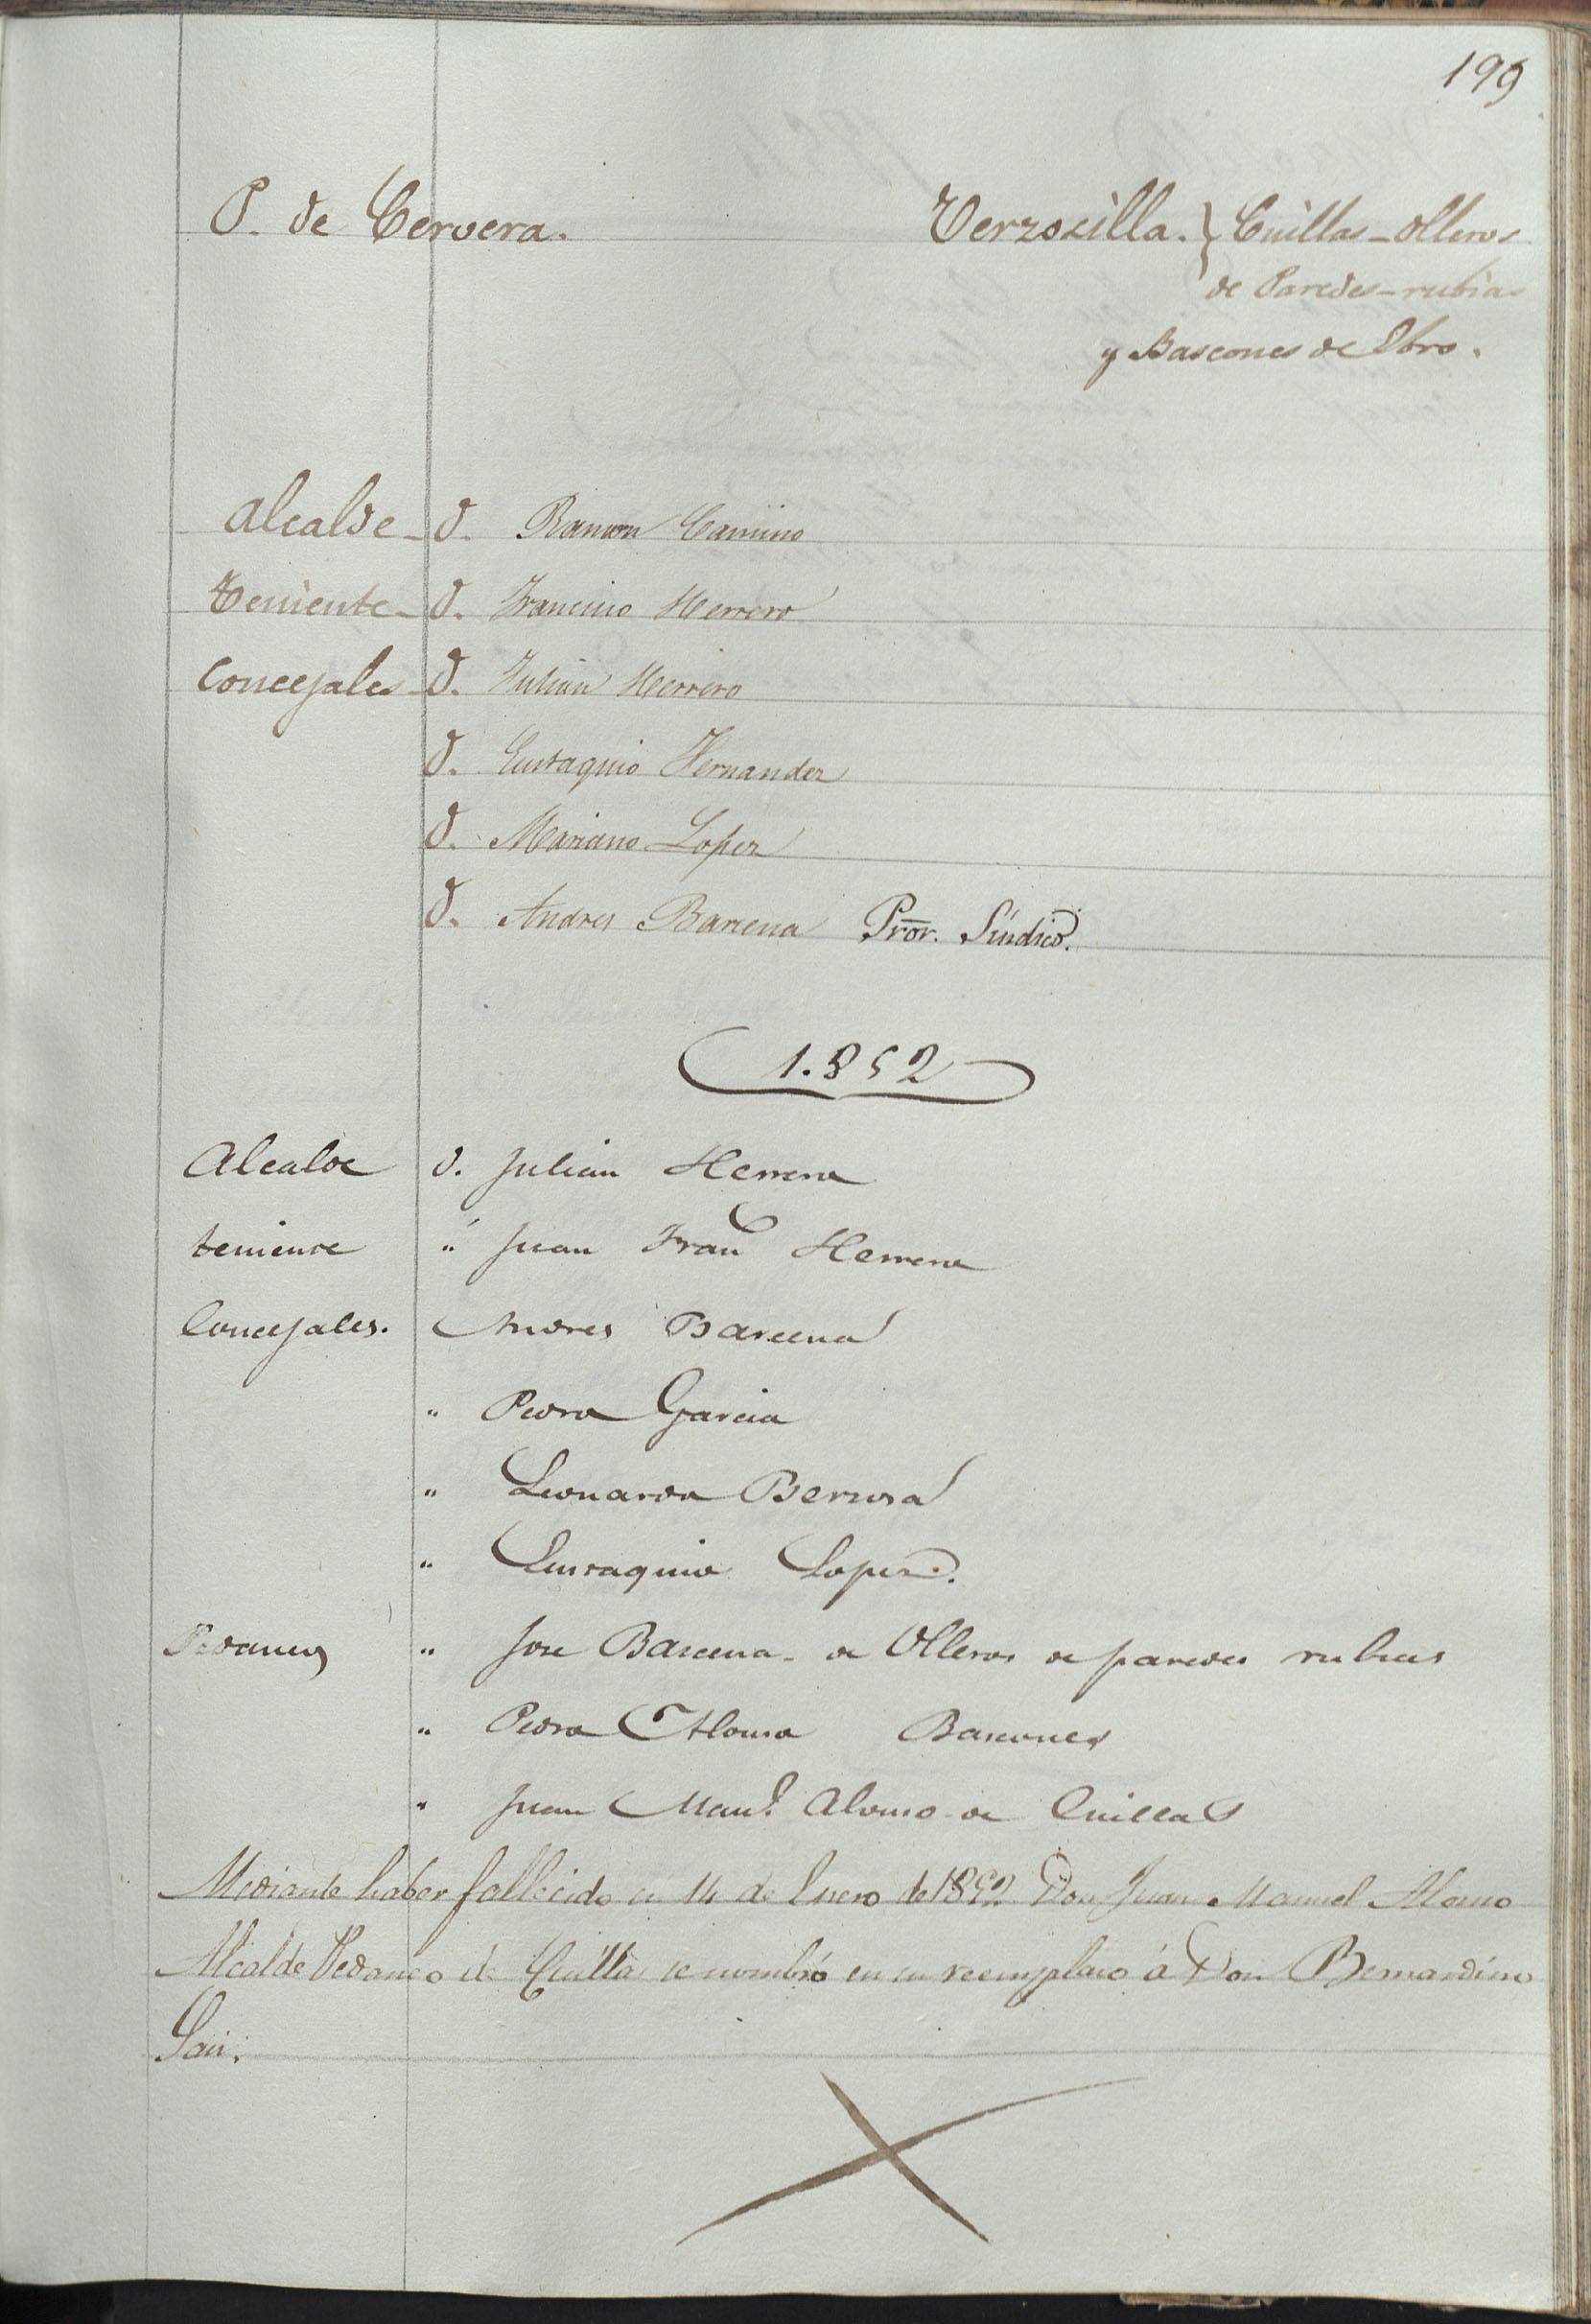 199
P. de Cervera.
Verzosilla. } Cuillas - Olleros
de Paredes-rubias
y Bascones de Ebro.
Alcalde - D. Ramon Camino
Teniente - D. Francisco Herrero
Concejales - D. Julian Herrero
D. Eustaquio Fernandez
D. Mariano Lopez
D. Andres Barcena Pror. Síndico.
1.852
Alcalde D. Julian Herrero
teniente " Juan Franco Herrero
Concejales. Andres Barcena
" Pedro Garcia
" Leonardo Berzosa
" Eustaquio Lopez.
Pedaneos " Jose Barcena - de Olleros de paredes rubias
" Pedro Alonso Bascones
" Juan Manl. Alonso de Cuillas
Mediante haber fallecido en 14 de Enero de 1852 Don Juan Manuel Alonso
Alcalde Pedaneo de Cuillas se nombró en su reemplazo á Don Bernardino